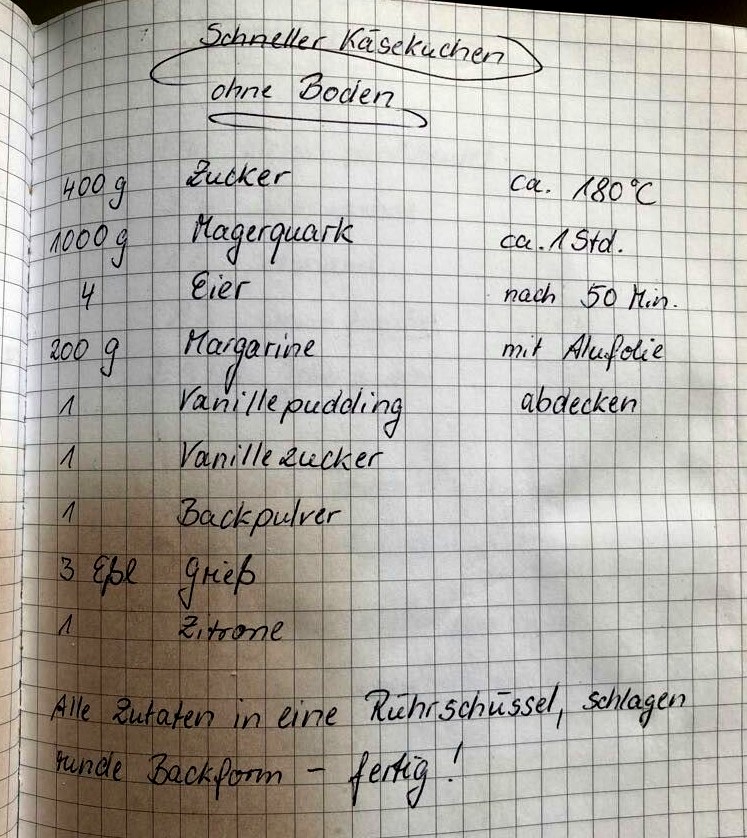 Schneller Käsekuchen
ohne Boden
400 g Zucker ca. 180°C
1000 g Magerquark ca. 1 Std.
4 Eier nach 50 Min.
200 g Margarine mit Alufolie
1 Vanillepudding abdecken
1 Vanillezucker
1 Backpulver
3 Eßl Grieß
1 Zitrone
Alle Zutaten in eine Rührschüssel, schlagen
runde Backform - fertig!